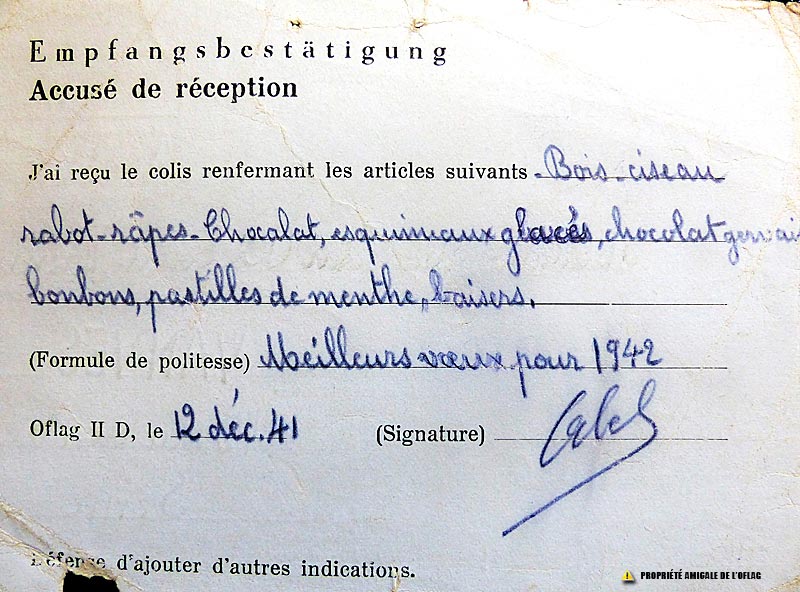 Empfangsbestätigung
Accusé de réception
J'ai reçu le colis renfermant les articles suivants Bois - ciseau
rabot - râpes - Chocalat, esquimaux glacés, chocolat gervai
bonbons, pastilles de menthe, baisers.
(Formule de politesse) Meilleurs vœux pour 1942
Oflag II D, le 12 déc. 41 (Signature)
Défense d'ajouter d'autres indications.
PROPRIÉTÉ AMIGALE DE L'OFLAG